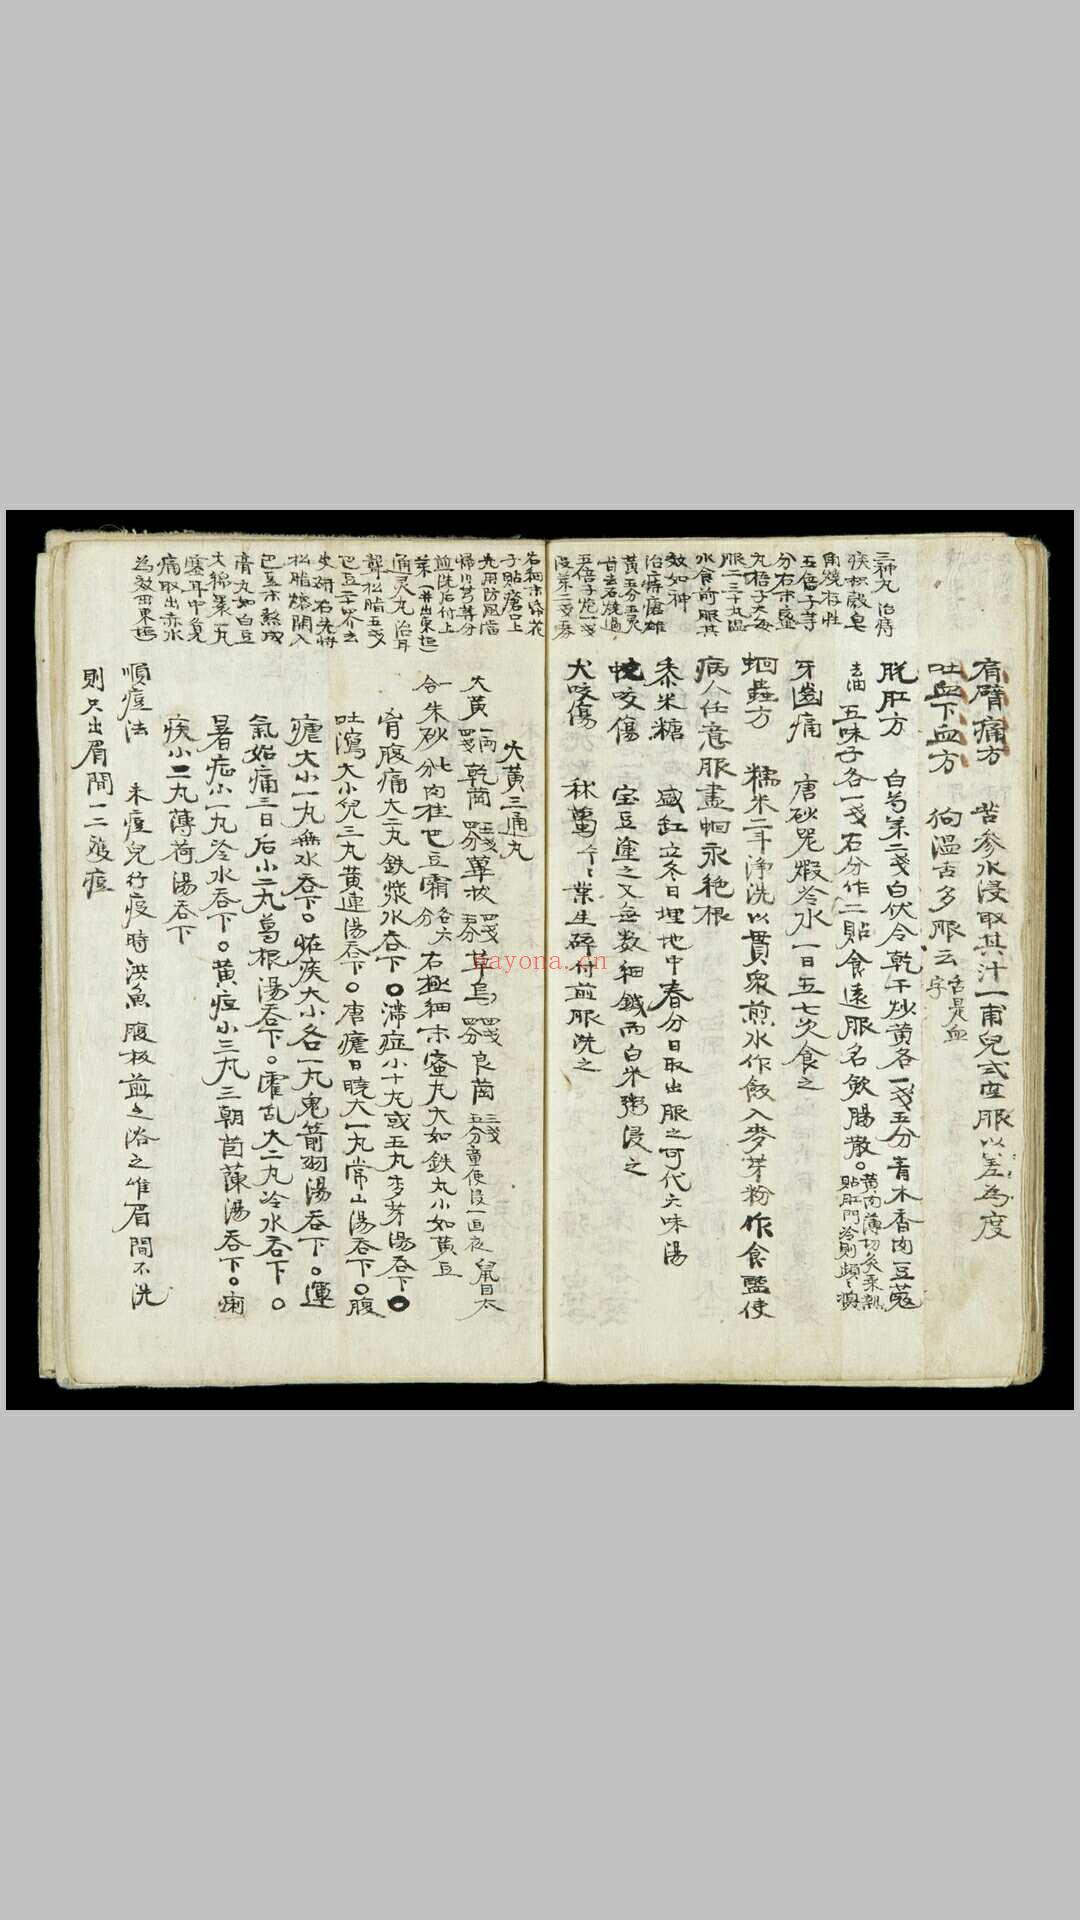 三神丸 治痔
疾枳殼皂
角燒存性
五倍子等
分右末蜜
丸梧子大每
服二三十丸温
水食前服其
效如神
治痔瘡雄
黃五分五灵
旨去石燒過
五倍子炮一戔
沒藥二戔
右細末綿花
子貼瘡口上
先用防風當
歸川芎等分
煎洗后付上
藥(并出東垣)
通灵丸 治耳
聾松脂五戔
巴豆二十介去
皮研右先將
松脂熔開入
巴豆末熬成
膏丸如白豆
大綿裹一丸
塞耳中覚
痛取出赤水
為效出東垣)
肩臂痛方 苦参水浸取其汁一甫兒式空服以差為度
吐血下血方 狗温舌多服云 舌是血字
脫肛方 白芍薬二戔白伏令乾干炒黄各一戔五分青木香肉豆蔻
去油 五味子各一戔右分作二貼食遠服名歛腸散。黄肉薄切灸乘熱貼肛門冷則頻々換
牙齒痛 唐砂兒煅冷水一日五七次食之
蛔蟲方 糯米二斗浄洗以貫衆煎水作飯入麥芽粉作食監使
病人任意服盡蛔永絶根
黍米糖 盛缸立冬日埋地中春分日取出服之可代六味湯
蛇咬傷 宝豆塗之又無数細鍼而白米粥浸之
犬咬傷 秋葛 葉生碎付煎服洗之
大黄三通丸
大黄一両四戔乾薑五戔四分蓽拔四戔五分草烏四戔四分良薑三戔五分童便浸一畫夜鼠目太
一合朱砂七分肉桂巴豆霜各六分右極細末蜜丸大如鉄丸小如黄豆
胷腹痛大二丸鉄漿水吞下。滯症小十丸或五丸麥芽湯吞下。
吐瀉大小兒三丸黄連湯吞下。唐瘧日暁大一丸常山湯吞下。腹
瘧大小一丸無水吞下。㽵疾大小各一丸鬼箭羽湯吞下。運
氣始痛三日后小二丸葛根湯吞下。霍乱大二丸冷水吞下。
暑症小一丸冷水吞下。黄症小三丸三朝茵蔯湯吞下。痢
疾小二丸薄荷湯吞下
順痘法 未痘兒行疫時洪魚腹板煎之浴之惟眉間不洗
則只出眉間一二痘
nayona.cn